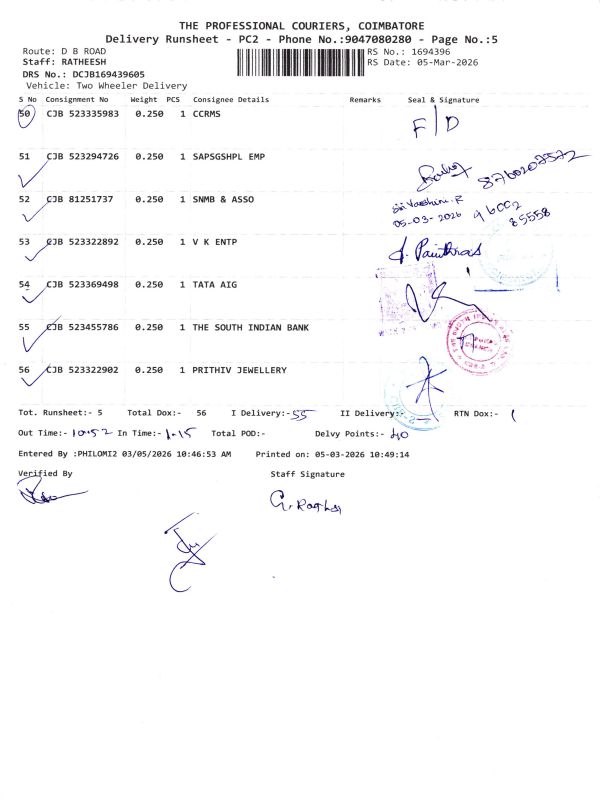 THE PROFESSIONAL COURIERS, COIMBATORE
Delivery Runsheet - PC2 - Phone No.:9047080280 - Page No.:5
Route: D B ROAD
RS No.: 1694396
Staff: RATHEESH
RS Date: 05-Mar-2026
DRS No.: DCJB169439605
Vehicle: Two Wheeler Delivery
S No Consignment No Weight PCS Consignee Details Remarks Seal & Signature
50 CJB 523335983 0.250 1 CCRMS F|D
51 CJB 523294726 0.250 1 SAPSGSHPL EMP
52 CJB 81251737 0.250 1 SNMB & ASSO Sri Varshini.R
05-03-2026 96002
85558
53 CJB 523322892 0.250 1 V K ENTP
54 CJB 523369498 0.250 1 TATA AIG
55 CJB 523455786 0.250 1 THE SOUTH INDIAN BANK
56 CJB 523322902 0.250 1 PRITHIV JEWELLERY
Tot. Runsheet:- 5 Total Dox:- 56 I Delivery:- 55 II Delivery:- RTN Dox:- 1
Out Time:- 10-52 In Time:- 1-15 Total POD:- Delvy Points:- 40
Entered By :PHILOMI2 03/05/2026 10:46:53 AM Printed on: 05-03-2026 10:49:14
Verified By Staff Signature